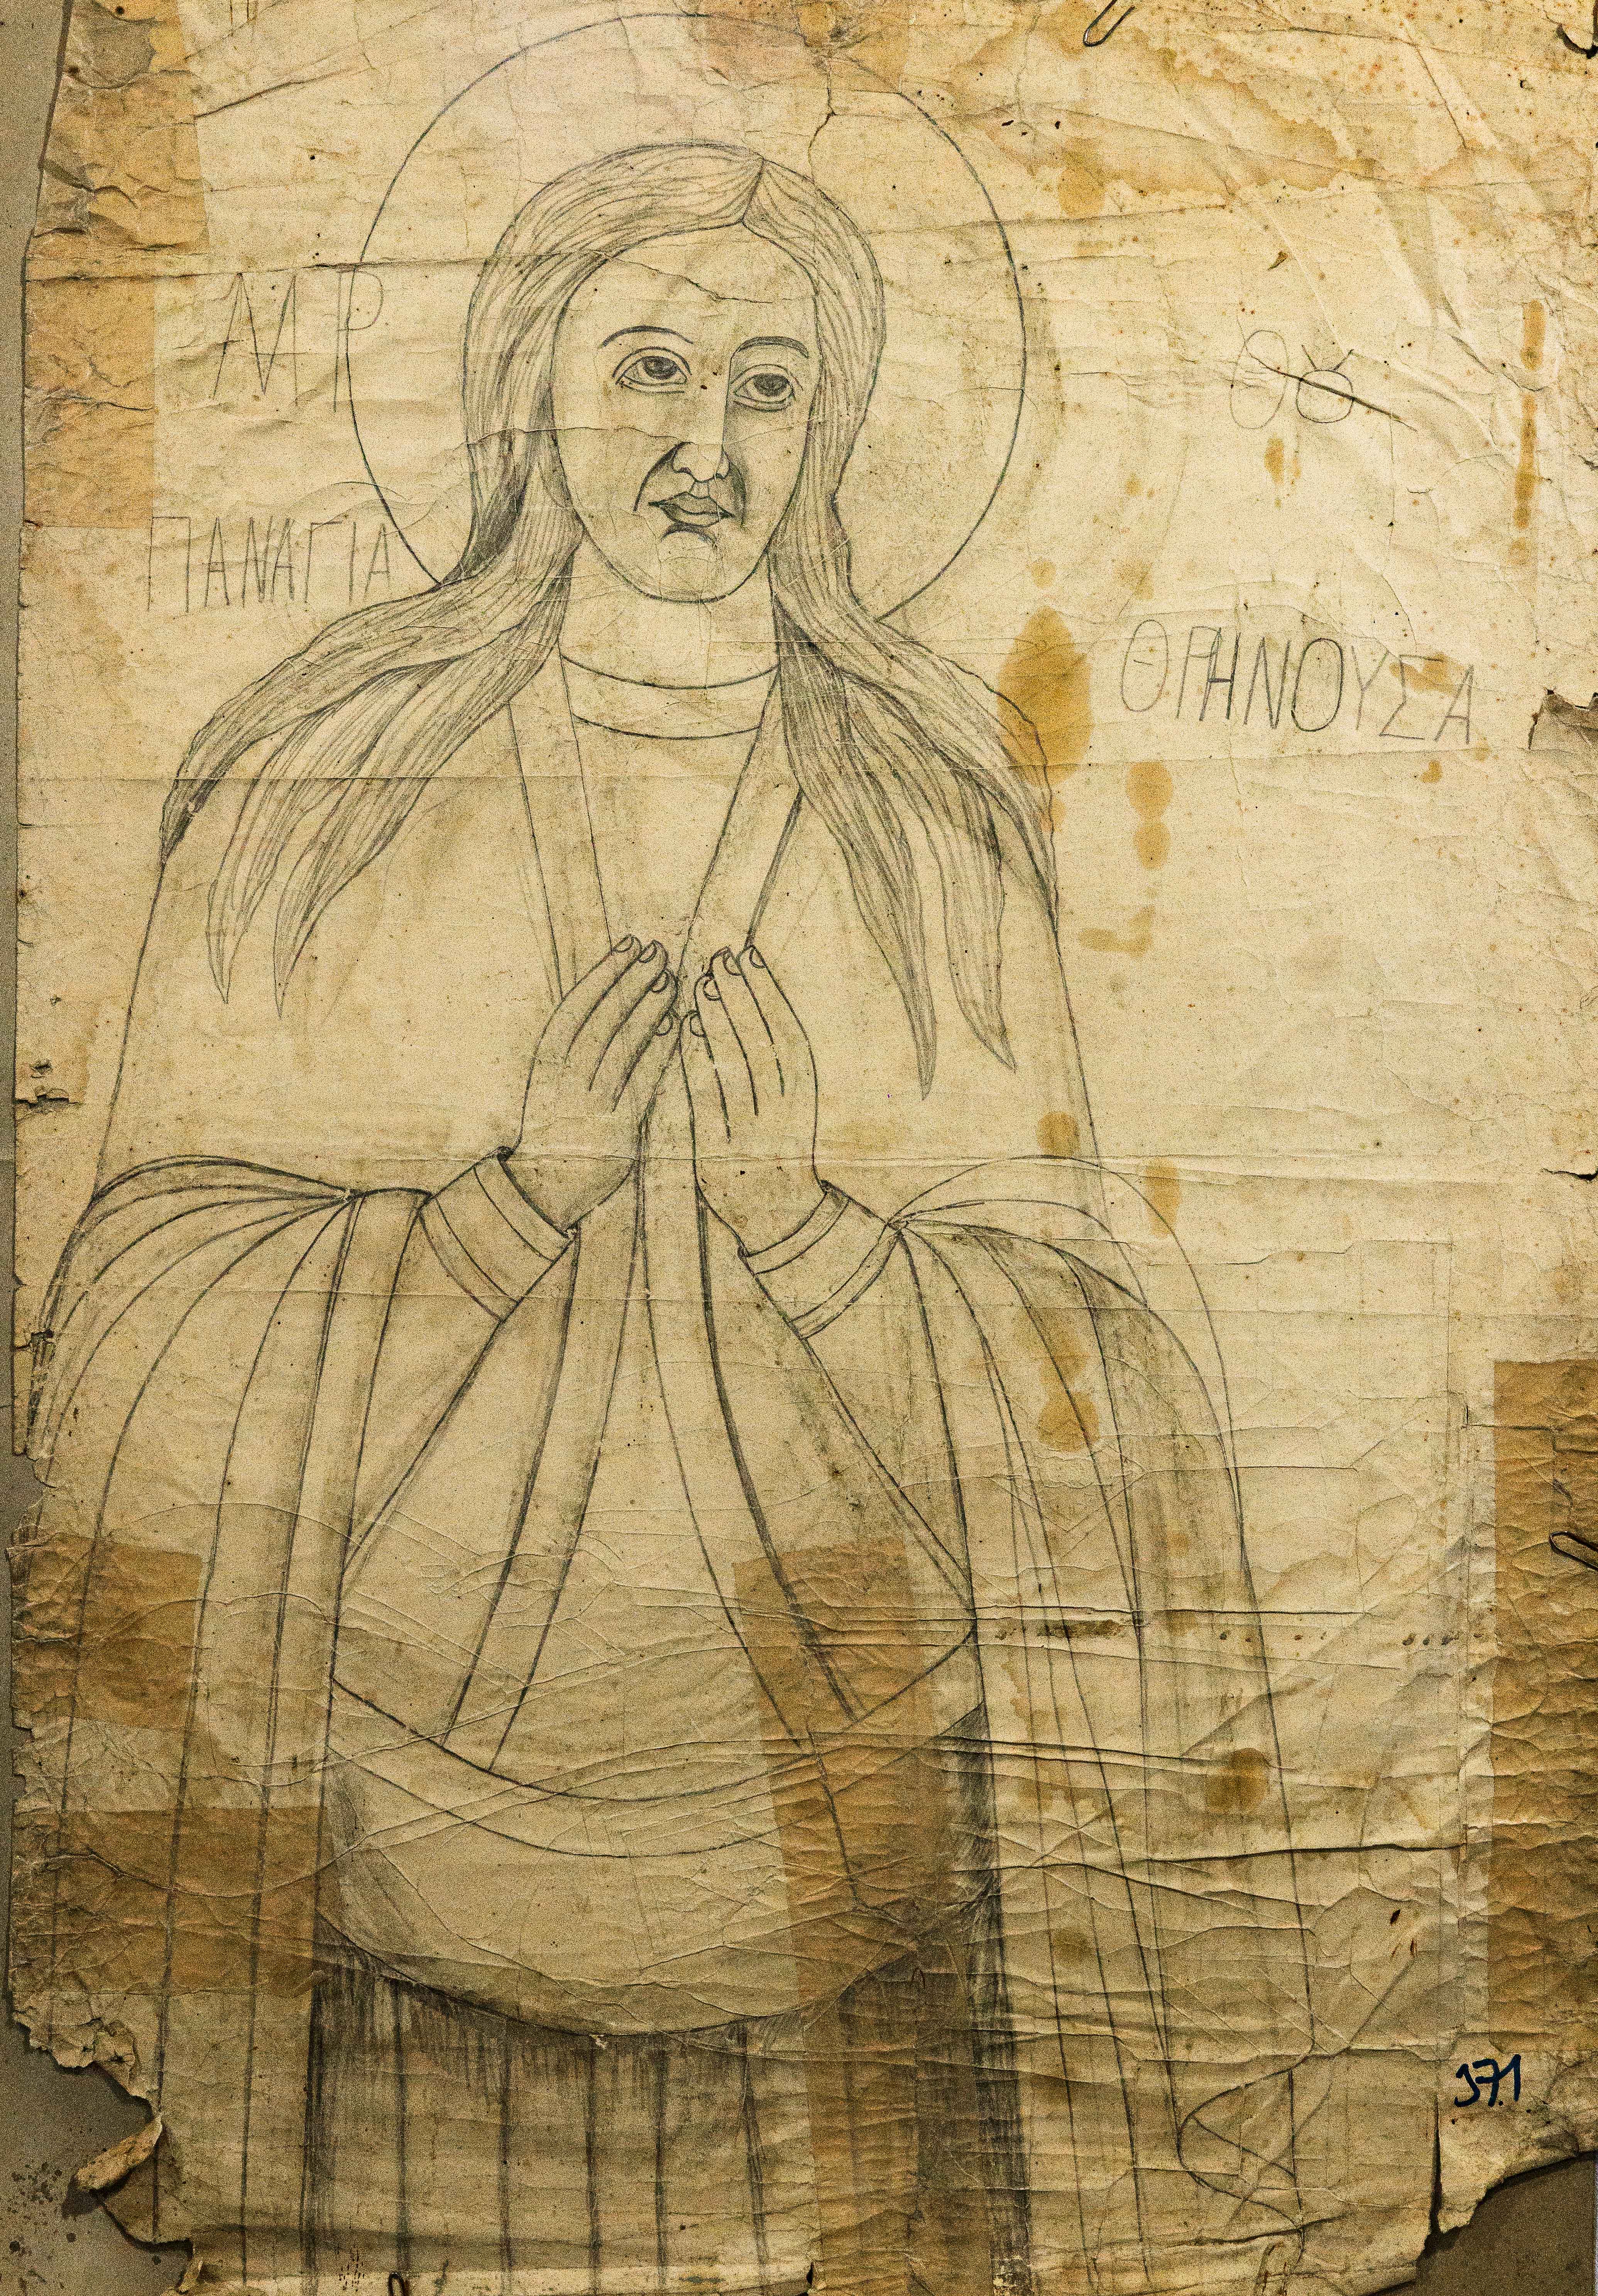 ΜΡ
ΘΥ
ΠΑΝΑΓΙΑ
ΘΡΗΝΟΥΣΑ
371